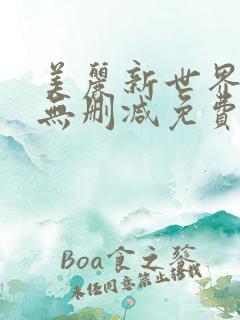 美麗新世界
無刪減免費
Boa食之發
未经同意禁止转载